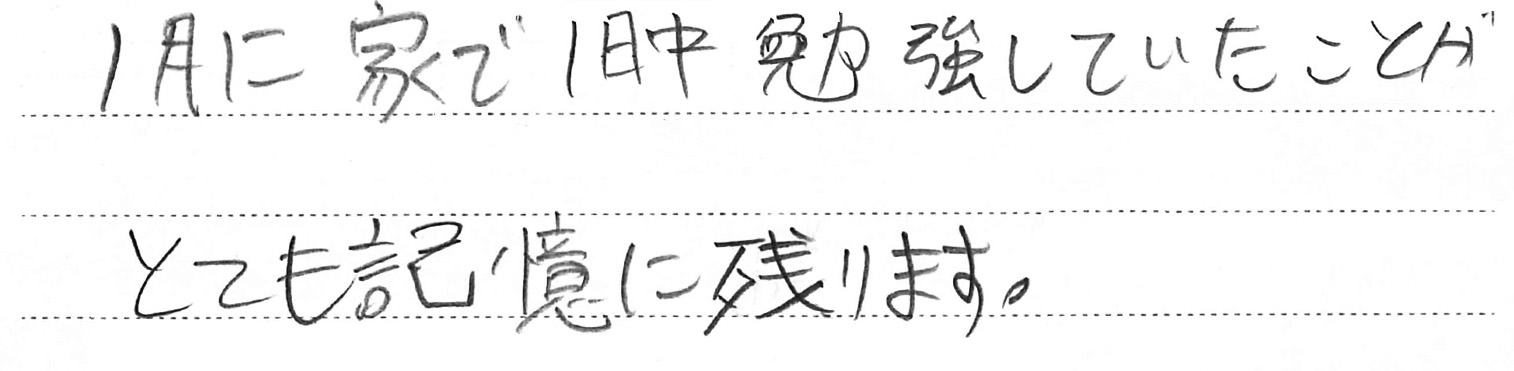 1月に家で1日中勉強していたことが
とても記憶に残ります。